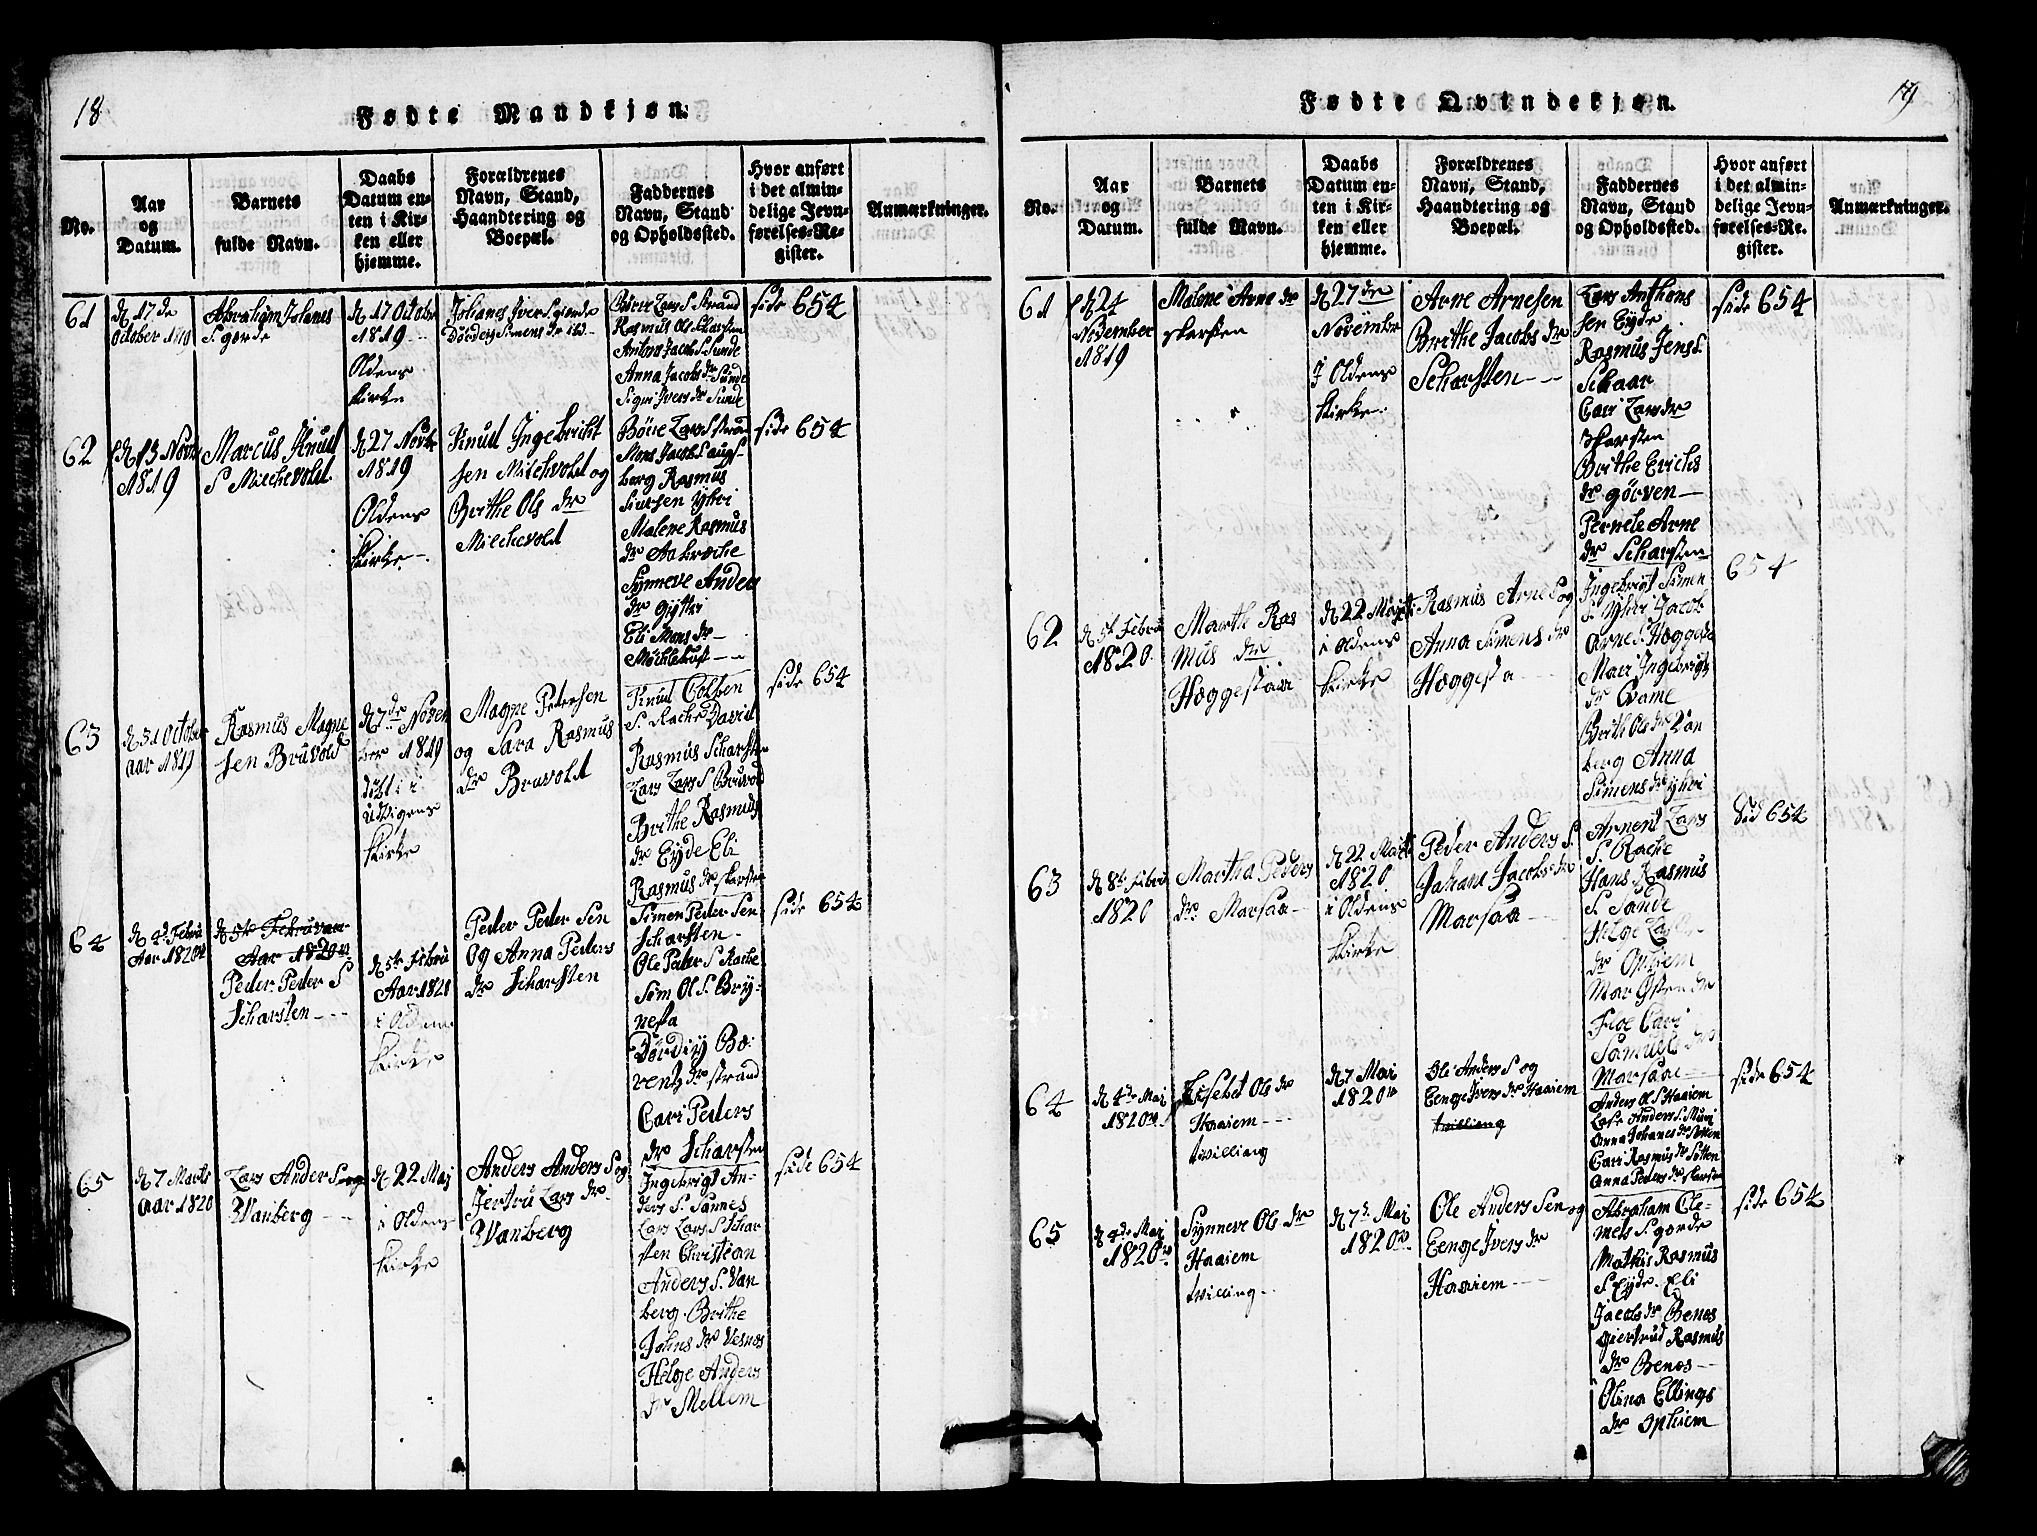 18
Fødte Mandkjøn.
No.
Aar
og
Datum.
Barnets
fulde Navn.
Daabs
Datum en-
ten i Kir-
ken eller
hjemme.
Forældrenes
Navn, Stand,
Haandtering og
Boepæl.
Faddernes
Navn, Stand
og Opholdssted.
Hvor anført
i det almin-
delige Jevn-
førelses-Re-
gister.
Anmærkninger.
61
d 17 de
October 1819
Abraham Johanes
S. gorde
d 17 Octobr
1819
Oldens
Kirke
Johanes Iver S. giorde
Rasmus Ol S. Skarsten
Anton Jacob S. Sunde
Anna Jacobs dr Sunde
Signi Ivers dr Sunde
side 654
62
d 13 Novbr
1819
Marcus Knud
S Milchevold
d 27 Novbr
1819
Oldens
Kirke
Knud Ingebricht
sen Milchvold og
Brithe Ols dr
Milchevold
Børre Lars S strand
Mons Jacob S augs-
berg Rasmus
Simesen Ytri
Malene Rasmus
dr Aabræche
Synneve Anders
dr gytri
Eli Mons dr
Møchlebust
side 654
63
d 31 October
aar 1819
Rasmus Magne
sen Bruvold
d 7 de Novem
ber 1819
døbt i
udvigens
Kirke
Magne Petersen
og Sara Rasmus
dr Bruvold
Knud Colben
S. Rache David
Rasmus Scharsten
Lars Lars S Bruvold
Brithe Rasmus
dr Eyde Eli
Rasmus dr skarsten
side 654
64
d 4de Febru
Aar 1820
d 5te Februar
Aar 1820
Peder Peder S
Scharsten
d 5te Febru
Aar 1820
i Oldens
Kirke
Peder Peder Sen
Og Anna Peders
dr Scharsten
Simen Peder Sen
Scharsten
Ole Peder S Rache
Sem Ol S. Bry-
nesta
Dørdiy Bø-
rents dr strand
Cari Peders
dr Scharsten
side 654
65
d 7 Marts
aar 1820
Lars Anders S og
Wanberg
d 22 Maj
i Oldens
Kirke
Anders Anders S og
Jertru Lars dr
Wanberg
Ingebrigt An-
ders S. Sannes
Lars Lars S. Schar
sten Christian
Anders S. Van
berg. Brithe
Johns dr Vesnes
Helge Anders
dr Mellem
side 654
19
Fødte Qvindekjøn.
No.
Aar
og
Datum.
Barnets
fulde Navn.
Daabs
Datum en-
ten i Kir-
ken eller
hjemme.
Forældrenes
Navn, Stand,
Haandtering og
Boepæl.
Faddernes
Navn, Stand
og Opholdssted.
Hvor anført
i det almin-
delige Jevn-
førelses-Re-
gister.
Anmærkninger.
61
d 24
November
1819
Malene Arne dr
skarsten
d 27 de
November
I Oldens
Kirke
Arne Arnesen
Brithe Jacobs dr
Scharsten
Lars Anthons
sen Eyde
Rasmus Jens S.
Schaar
Cari Lars dr
Skarsten
Brithe Erichs
dr gørven
Pernele Arne
dr Scharsten
side 654
62
d 5te Febru
1820
Marthe Ras
mus dr
Høggestavi
d 22 Maj
i Oldens
Kirke
Rasmus Arne S og
Anna Simens dr
Høggesta
Ingebrigt Simen
S. Ytri Jacob
Arne S Høggesta
Mari Ingebrigts
dr Qvame
Brith Ols dr Van
berg Anna
Simens dr ytri
654
63
d 8te Febru
1820
Martha Peders
dr Marsaa
d 22 Maj
1820
i Oldens
Kirke
Peder Anders S.
Johana Jacobs dr
Marsaa
Arnent Lars
S. Rache
Hans Rasmus
S. Sande
Helge Lars
dr Ophiem
Mar Østen dr
Floe Cari
Samuels dr
Marsaae
Sid 654
64
d 4de Maj
1820
Liesebet Ols dr
Haaiem
twilling
d 7 Mai
1820
Ole Anders S og
Eenge Ivers dr Haaiem
twilling
Anders Ol S. Haaiem
Lars Anders S. Muri
Anna Johanes dr Sætten
Cari Rasmus dr Sætten
Anna Peders dr skarsten
side 654
65
d 4de Maj
1820
Synneve Ols dr
Haaiem
twilling
d 7de Maj
1820
Ole Anders Sen og
Eenge Ivers dr
Haaiem
Abraham Cle-
mets S. gorde
Mathis Rasmus
S Eyde. Eli
Jacobs dr Benes
Giertrud Rasmus
dr Benes
Olina Ellings
dr Ophiem
side 654